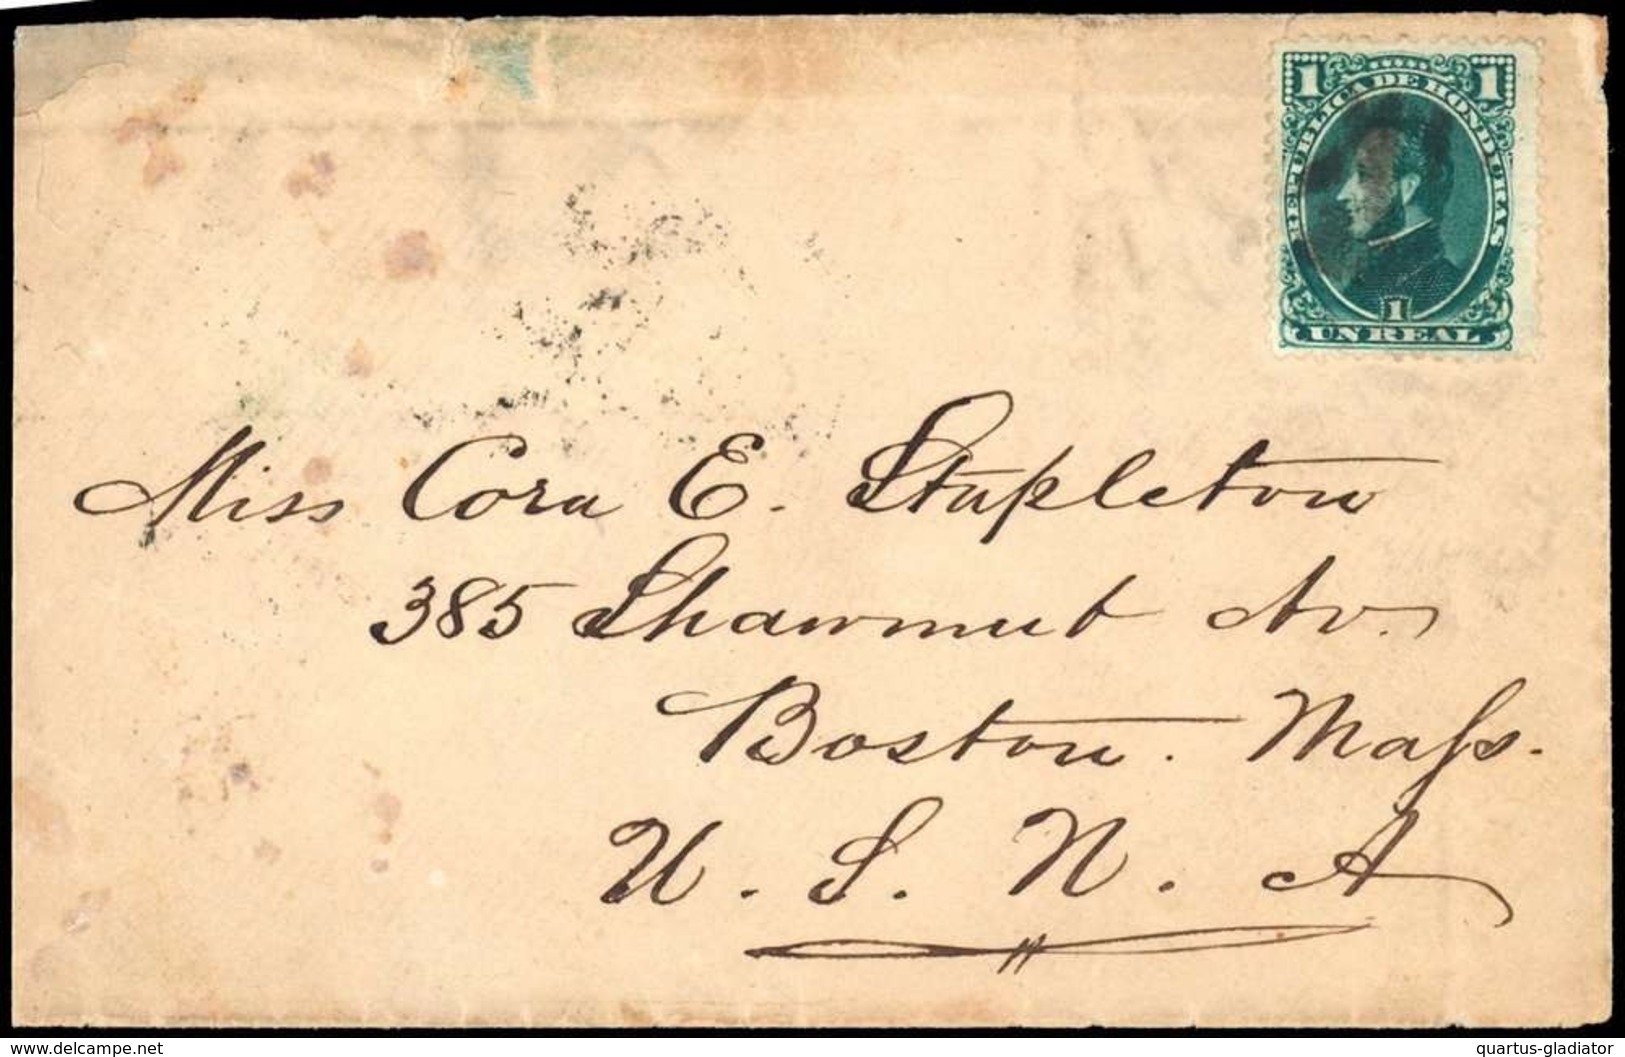 1 1
REPUBLICA DE HONDURAS
1
UN REAL
Miss Cora E. Stapleton
385 Shawmut Av.
Boston. Mass.
U. S. N. A
www.delcampe.net
quartus-gladiator